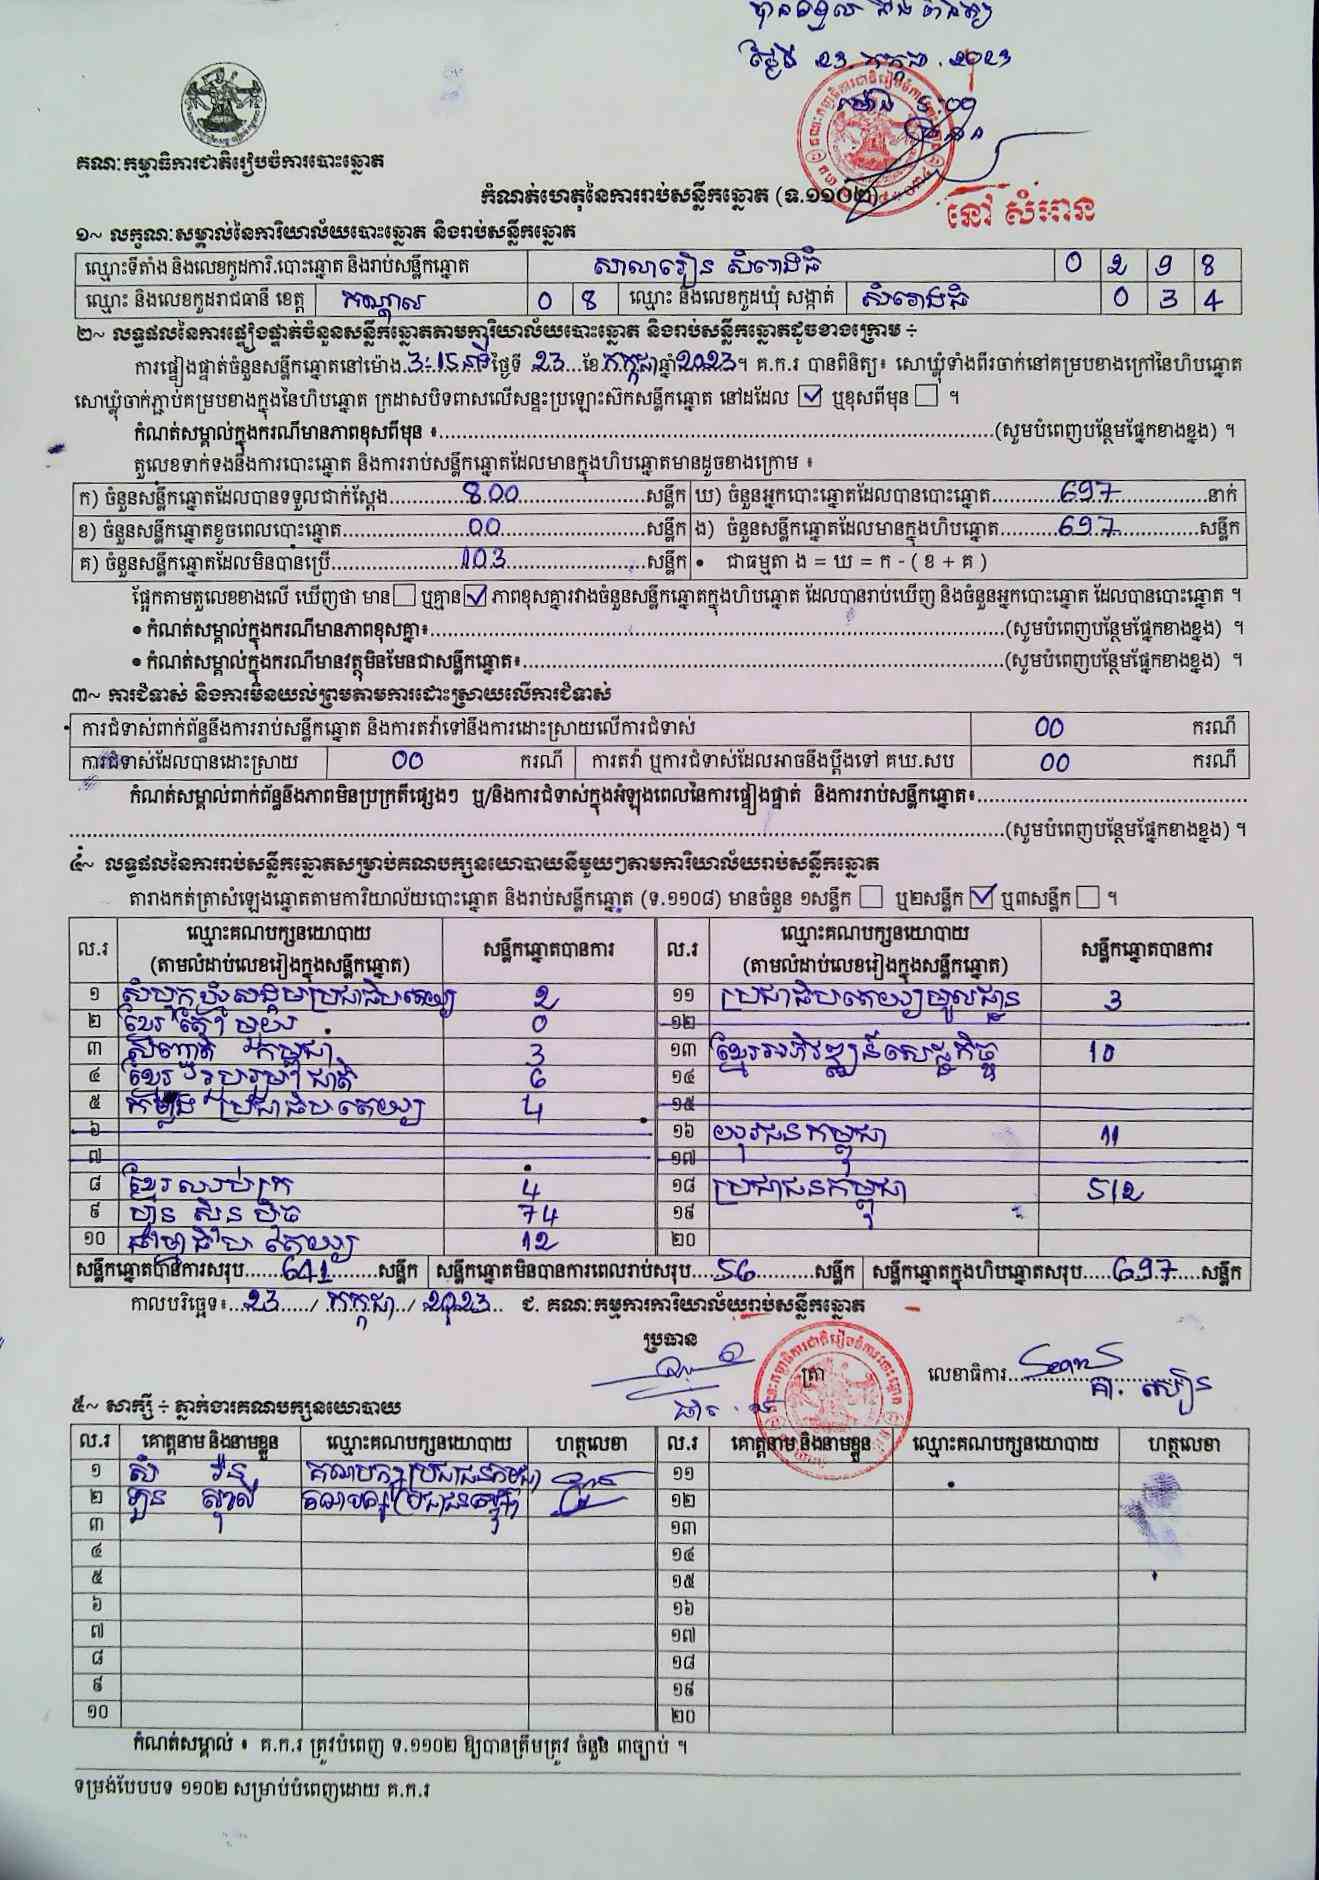 ថ្ងៃទី 23 កក្កដា 2023
ម៉ោង
នៅ សំអាន
គណៈកម្មាធិការជាតិរៀបចំការបោះឆ្នោត
កំណត់ហេតុនៃការរាប់សន្លឹកឆ្នោត (ទ.១១០២)
១~ លក្ខណៈសម្គាល់នៃការិយាល័យបោះឆ្នោត និងរាប់សន្លឹកឆ្នោត
ឈ្មោះទីតាំង និងលេខកូដការិ.បោះឆ្នោត និងរាប់សន្លឹកឆ្នោត សាលារៀន 0 2 9 8
ឈ្មោះ និងលេខកូដរាជធានី ខេត្ត កណ្តាល 0 8 ឈ្មោះ និងលេខកូដឃុំ សង្កាត់ 0 3 4
២~ លទ្ធផលនៃការផ្ទៀងផ្ទាត់ចំនួនសន្លឹកឆ្នោតតាមការិយាល័យបោះឆ្នោត និងរាប់សន្លឹកឆ្នោតដូចខាងក្រោម ÷
ការផ្ទៀងផ្ទាត់ចំនួនសន្លឹកឆ្នោតនៅម៉ោង 3:15 នាទី ថ្ងៃទី 23 ខែ កក្កដា ឆ្នាំ 2023 ។ គ.ក.រ បានពិនិត្យ៖ សោឃ្លុំទាំងពីរចាក់នៅគម្របខាងក្រៅនៃហិបឆ្នោត
សោឃ្លុំចាក់ភ្ជាប់គម្របខាងក្នុងនៃហិបឆ្នោត ក្រដាសបិទពាសលើសន្ទះប្រឡោះស៊កសន្លឹកឆ្នោត នៅដដែល ☑ ឬខុសពីមុន ☐ ។
កំណត់សម្គាល់ក្នុងករណីមានភាពខុសពីមុន ៖ (សូមបំពេញបន្ថែមផ្នែកខាងខ្នង) ។
តួលេខទាក់ទងនឹងការបោះឆ្នោត និងការរាប់សន្លឹកឆ្នោតដែលមានក្នុងហិបឆ្នោតមានដូចខាងក្រោម ៖
ក) ចំនួនសន្លឹកឆ្នោតដែលបានទទួលជាក់ស្តែង 800 សន្លឹក ឃ) ចំនួនអ្នកបោះឆ្នោតដែលបានបោះឆ្នោត 697 នាក់
ខ) ចំនួនសន្លឹកឆ្នោតខូចពេលបោះឆ្នោត 00 សន្លឹក ង) ចំនួនសន្លឹកឆ្នោតដែលមានក្នុងហិបឆ្នោត 697 សន្លឹក
គ) ចំនួនសន្លឹកឆ្នោតដែលមិនបានប្រើ 103 សន្លឹក • ជាធម្មតា ង = ឃ = ក - ( ខ + គ )
ផ្អែកតាមតួលេខខាងលើ ឃើញថា មាន ☐ ឬគ្មាន ☑ ភាពខុសគ្នារវាងចំនួនសន្លឹកឆ្នោតក្នុងហិបឆ្នោត ដែលបានរាប់ឃើញ និងចំនួនអ្នកបោះឆ្នោត ដែលបានបោះឆ្នោត ។
• កំណត់សម្គាល់ក្នុងករណីមានភាពខុសគ្នា៖ (សូមបំពេញបន្ថែមផ្នែកខាងខ្នង) ។
• កំណត់សម្គាល់ក្នុងករណីមានវត្ថុមិនមែនជាសន្លឹកឆ្នោត៖ (សូមបំពេញបន្ថែមផ្នែកខាងខ្នង) ។
៣~ ការជំទាស់ និងការមិនយល់ព្រមតាមការដោះស្រាយលើការជំទាស់
ការជំទាស់ពាក់ព័ន្ធនឹងការរាប់សន្លឹកឆ្នោត និងការតវ៉ាទៅនឹងការដោះស្រាយលើការជំទាស់ 00 ករណី
ការជំទាស់ដែលបានដោះស្រាយ 00 ករណី ការតវ៉ា ឬការជំទាស់ដែលអាចនឹងប្តឹងទៅ គឃ.សប 00 ករណី
កំណត់សម្គាល់ពាក់ព័ន្ធនឹងភាពមិនប្រក្រតីផ្សេងៗ ឬ/និងការជំទាស់ក្នុងអំឡុងពេលនៃការផ្ទៀងផ្ទាត់ និងការរាប់សន្លឹកឆ្នោត៖
(សូមបំពេញបន្ថែមផ្នែកខាងខ្នង) ។
៤~ លទ្ធផលនៃការរាប់សន្លឹកឆ្នោតសម្រាប់គណបក្សនយោបាយនីមួយៗតាមការិយាល័យរាប់សន្លឹកឆ្នោត
តារាងកត់ត្រាសំឡេងឆ្នោតតាមការិយាល័យបោះឆ្នោត និងរាប់សន្លឹកឆ្នោត (ទ.១១០៨) មានចំនួន ១សន្លឹក ☐ ឬ២សន្លឹក ☑ ឬ៣សន្លឹក ☐ ។
ល.រ ឈ្មោះគណបក្សនយោបាយ (តាមលំដាប់លេខរៀងក្នុងសន្លឹកឆ្នោត) សន្លឹកឆ្នោតបានការ ល.រ ឈ្មោះគណបក្សនយោបាយ (តាមលំដាប់លេខរៀងក្នុងសន្លឹកឆ្នោត) សន្លឹកឆ្នោតបានការ
១ សំបុកឃ្មុំសង្គមប្រជាធិបតេយ្យ 2 ១១ ប្រជាធិបតេយ្យមូលដ្ឋាន 3
២ ខ្មែរ តែ មួយ 0 ១២
៣ កម្ពុជា 3 ១៣ ខ្មែរអភិវឌ្ឍន៍សេដ្ឋកិច្ច 10
៤ ខ្មែរ រួបរួម ជាតិ 6 ១៤
៥ កម្លាំង ប្រជាធិបតេយ្យ 4 ១៥
៦ ១៦ យុវជនកម្ពុជា 11
៧ ១៧
៨ ខ្មែរឈប់ក្រ 4 ១៨ ប្រជាជនកម្ពុជា 512
៩ ហ៊្វុន ស៊ិន ប៉ិច 74 ១៩
១០ ធម្មាធិបតេយ្យ 12 ២០
សន្លឹកឆ្នោតបានការសរុប 641 សន្លឹក សន្លឹកឆ្នោតមិនបានការពេលរាប់សរុប 56 សន្លឹក សន្លឹកឆ្នោតក្នុងហិបឆ្នោតសរុប 697 សន្លឹក
កាលបរិច្ឆេទ៖ 23 / កក្កដា / 2023 ជ. គណៈកម្មការការិយាល័យរាប់សន្លឹកឆ្នោត
ប្រធាន
ត្រា លេខាធិការ
៥~ សាក្សី ÷ ភ្នាក់ងារគណបក្សនយោបាយ
ល.រ គោត្តនាម និងនាមខ្លួន ឈ្មោះគណបក្សនយោបាយ ហត្ថលេខា ល.រ គោត្តនាម និងនាមខ្លួន ឈ្មោះគណបក្សនយោបាយ ហត្ថលេខា
១ គណបក្សប្រជាជនកម្ពុជា ១១
២ គណបក្សប្រជាជនកម្ពុជា ១២
៣ ១៣
៤ ១៤
៥ ១៥
៦ ១៦
៧ ១៧
៨ ១៨
៩ ១៩
១០ ២០
កំណត់សម្គាល់ ៖ គ.ក.រ ត្រូវបំពេញ ទ.១១០២ ឱ្យបានត្រឹមត្រូវ ចំនួន ៣ច្បាប់ ។
ទម្រង់បែបបទ ១១០២ សម្រាប់បំពេញដោយ គ.ក.រ